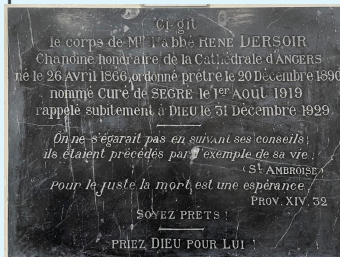 Ci-gît
le corps de Mr l'abbé RENÉ DERSOIR
Chanoine honoraire de la Cathédrale d'ANGERS
né le 26 Avril 1866, ordonné prêtre le 20 Décembre 1890
nommé Curé de SEGRÉ le 1er Août 1919
rappelé subitement à DIEU le 31 Décembre 1929
On ne s'égarait pas en suivant ses conseils;
ils étaient précédés par l'exemple de sa vie!
(St AMBROISE)
Pour le juste la mort est une espérance
PROV. XIV, 32
SOYEZ PRÊTS!
PRIEZ DIEU POUR LUI!